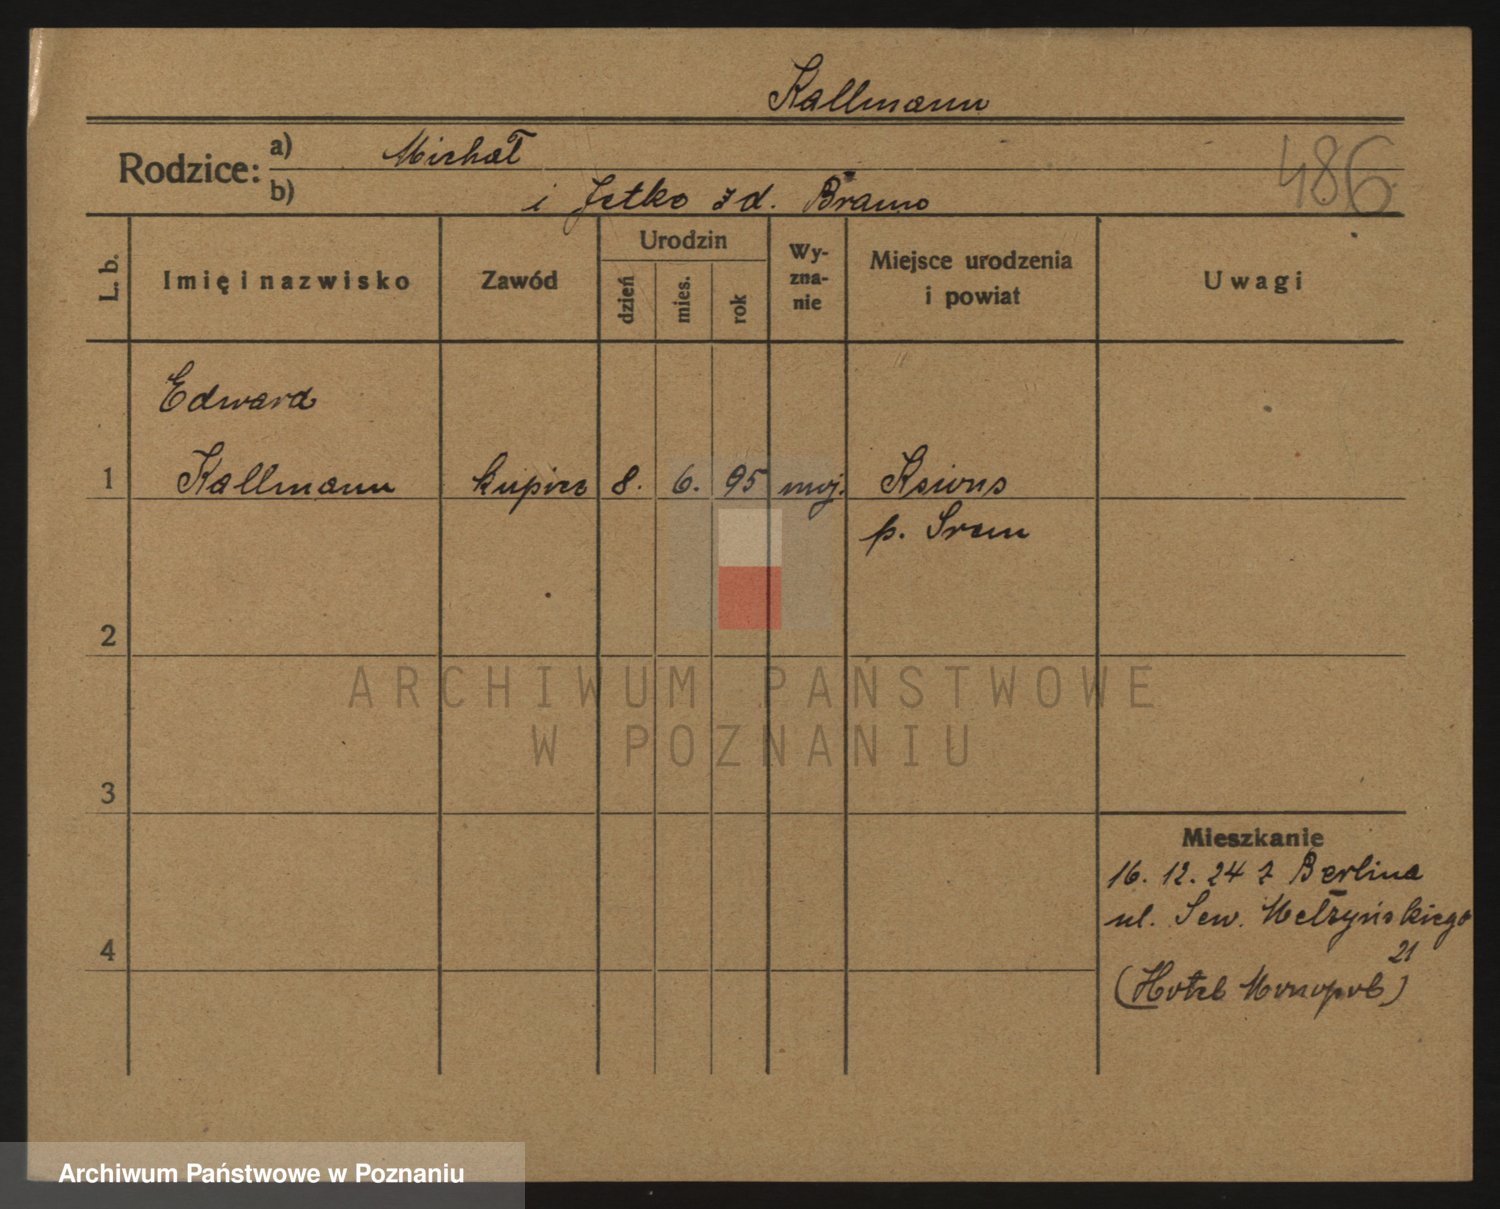 Kallmann
Rodzice: a) Michał
486
b) i Jetka z d. Bramo
L. b. Imię i nazwisko Zawód Urodzin dzień mies. rok Wy-zna-nie Miejsce urodzenia i powiat Uwagi
Edward
1 Kallmann kupiec 8. 6. 95 moj. Ksions
p. Srem
2
ARCHIWUM PAŃSTWOWE
W POZNANIU
3
Mieszkanie
16. 12. 24 z Berlina
ul. Sew. Mełżyńskiego
4
21
(Hotel Monopol)
Archiwum Państwowe w Poznaniu